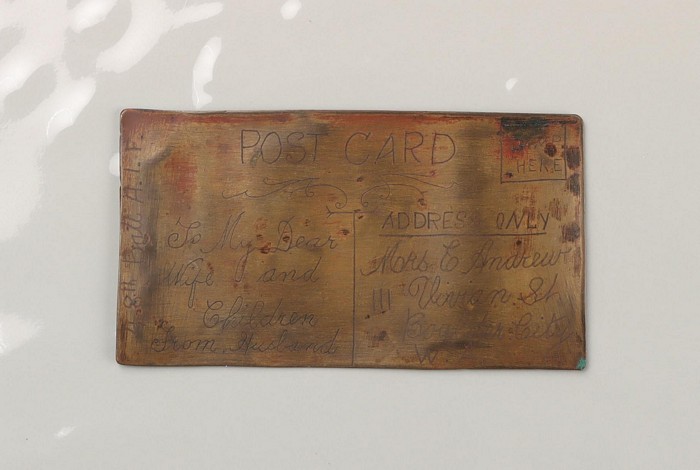 POST CARD
HERE
To My Dear
Wife and
Children
From Husband
ADDRESS ONLY
Mrs E Andrew
111 Vivian St
City
W.
Batt A.I.F